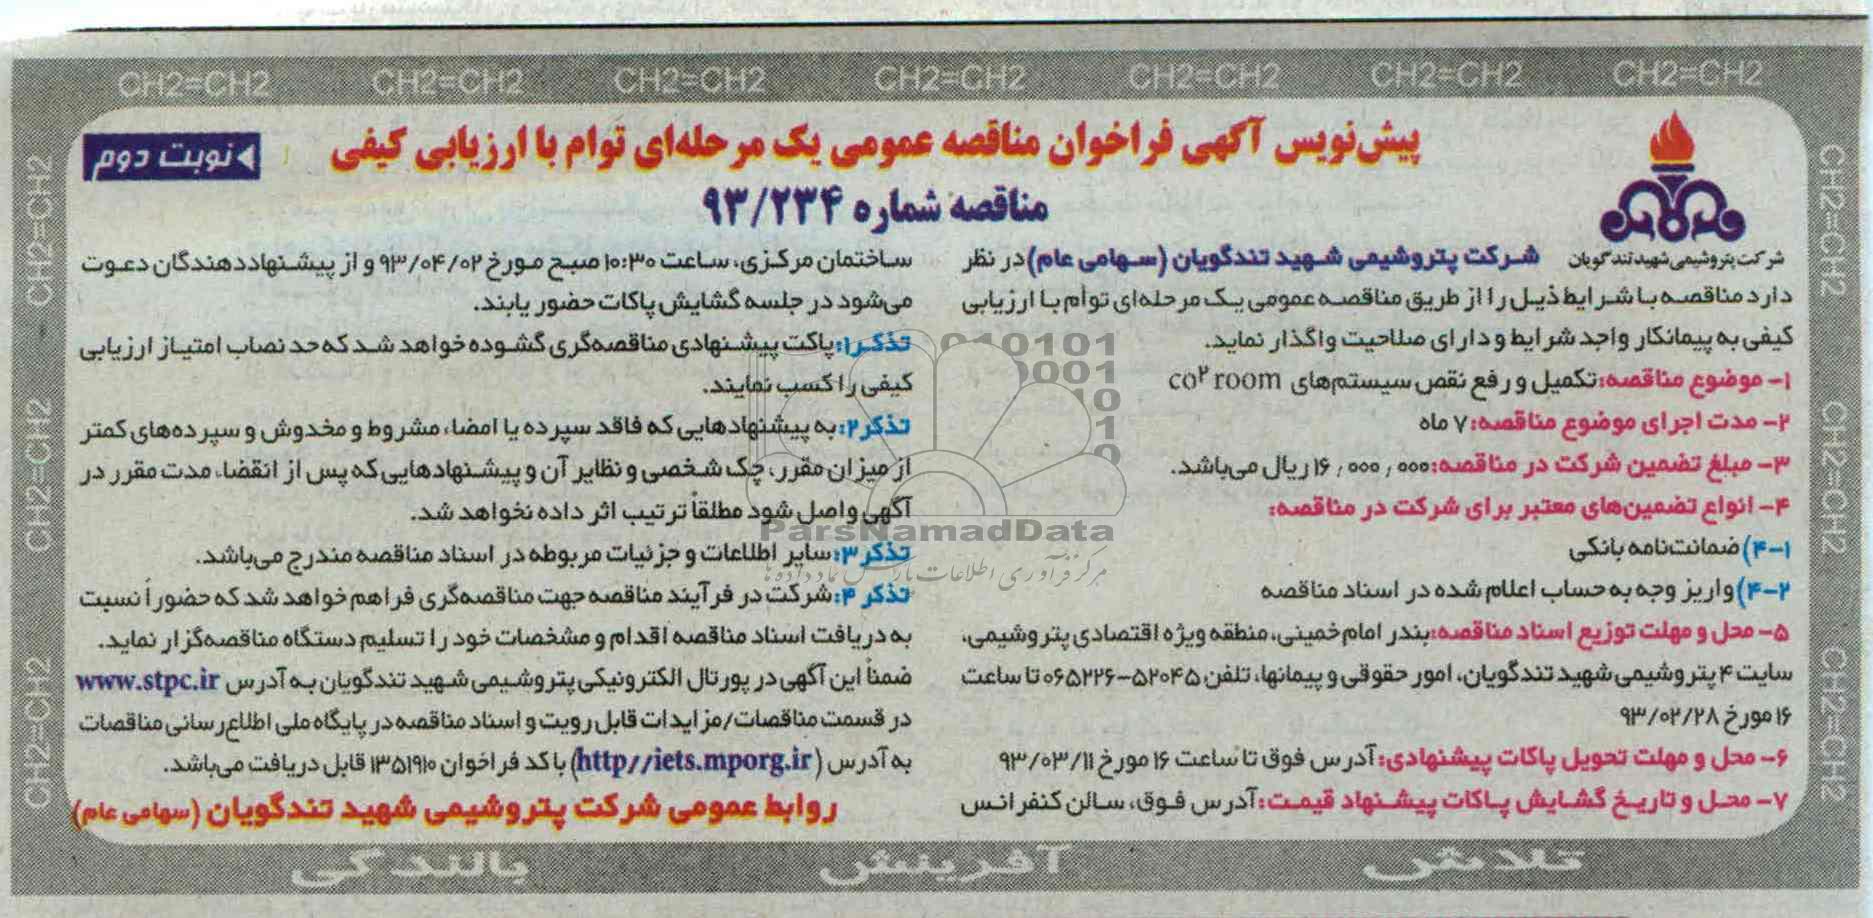 CH2=CH2 CH2=CH2 CH2=CH2 CH2=CH2 CH2=CH2 CH2=CH2 CH2=CH2
پیش‌نویس آگهی فراخوان مناقصه عمومی یک مرحله‌ای توام با ارزیابی کیفی
نوبت دوم
مناقصه شماره ۹۳/۲۳۴
شرکت پتروشیمی شهید تندگویان
شرکت پتروشیمی شهید تندگویان (سهامی عام) در نظر
دارد مناقصه با شرایط ذیل را از طریق مناقصه عمومی یک مرحله‌ای توأم با ارزیابی
کیفی به پیمانکار واجد شرایط و دارای صلاحیت واگذار نماید.
۱- موضوع مناقصه: تکمیل و رفع نقص سیستم‌های co۲ room
۲- مدت اجرای موضوع مناقصه: ۷ ماه
۳- مبلغ تضمین شرکت در مناقصه: ۱۶,۰۰۰,۰۰۰ ریال می‌باشد.
۴- انواع تضمین‌های معتبر برای شرکت در مناقصه:
۴-۱) ضمانت‌نامه بانکی
۴-۲) واریز وجه به حساب اعلام شده در اسناد مناقصه
۵- محل و مهلت توزیع اسناد مناقصه: بندر امام خمینی، منطقه ویژه اقتصادی پتروشیمی،
سایت ۴ پتروشیمی شهید تندگویان، امور حقوقی و پیمانها، تلفن ۵۲۰۴۵-۰۶۵۲۲۶ تا ساعت
۱۶ مورخ ۹۳/۰۲/۲۸
۶- محل و مهلت تحویل پاکات پیشنهادی: آدرس فوق تا ساعت ۱۶ مورخ ۹۳/۰۳/۱۱
۷- محل و تاریخ گشایش پاکات پیشنهاد قیمت: آدرس فوق، سالن کنفرانس
ساختمان مرکزی، ساعت ۱۰:۳۰ صبح مورخ ۹۳/۰۴/۰۲ و از پیشنهاددهندگان دعوت
می‌شود در جلسه گشایش پاکات حضور یابند.
تذکر۱: پاکت پیشنهادی مناقصه‌گری گشوده خواهد شد که حد نصاب امتیاز ارزیابی
کیفی را کسب نمایند.
تذکر۲: به پیشنهادهایی که فاقد سپرده یا امضا، مشروط و مخدوش و سپرده‌های کمتر
از میزان مقرر، چک شخصی و نظایر آن و پیشنهادهایی که پس از انقضاء مدت مقرر در
آگهی واصل شود مطلقاً ترتیب اثر داده نخواهد شد.
تذکر۳: سایر اطلاعات و جزئیات مربوطه در اسناد مناقصه مندرج می‌باشد.
تذکر۴: شرکت در فرآیند مناقصه جهت مناقصه‌گری فراهم خواهد شد که حضوراً نسبت
به دریافت اسناد مناقصه اقدام و مشخصات خود را تسلیم دستگاه مناقصه‌گزار نماید.
ضمناً این آگهی در پورتال الکترونیکی پتروشیمی شهید تندگویان به آدرس www.stpc.ir
در قسمت مناقصات/مزایدات قابل رویت و اسناد مناقصه در پایگاه ملی اطلاع‌رسانی مناقصات
به آدرس (http//iets.mporg.ir) با کد فراخوان ۱۳۵۱۹۱۰ قابل دریافت می‌باشد.
روابط عمومی شرکت پتروشیمی شهید تندگویان (سهامی عام)
CH2=CH2 CH2=CH2 CH2=CH2
CH2=CH2 CH2=CH2 CH2=CH2
ParsNamadData
مرکز فرآوری اطلاعات پارس نماد داده ها
تلاش آفرینش بالندگی